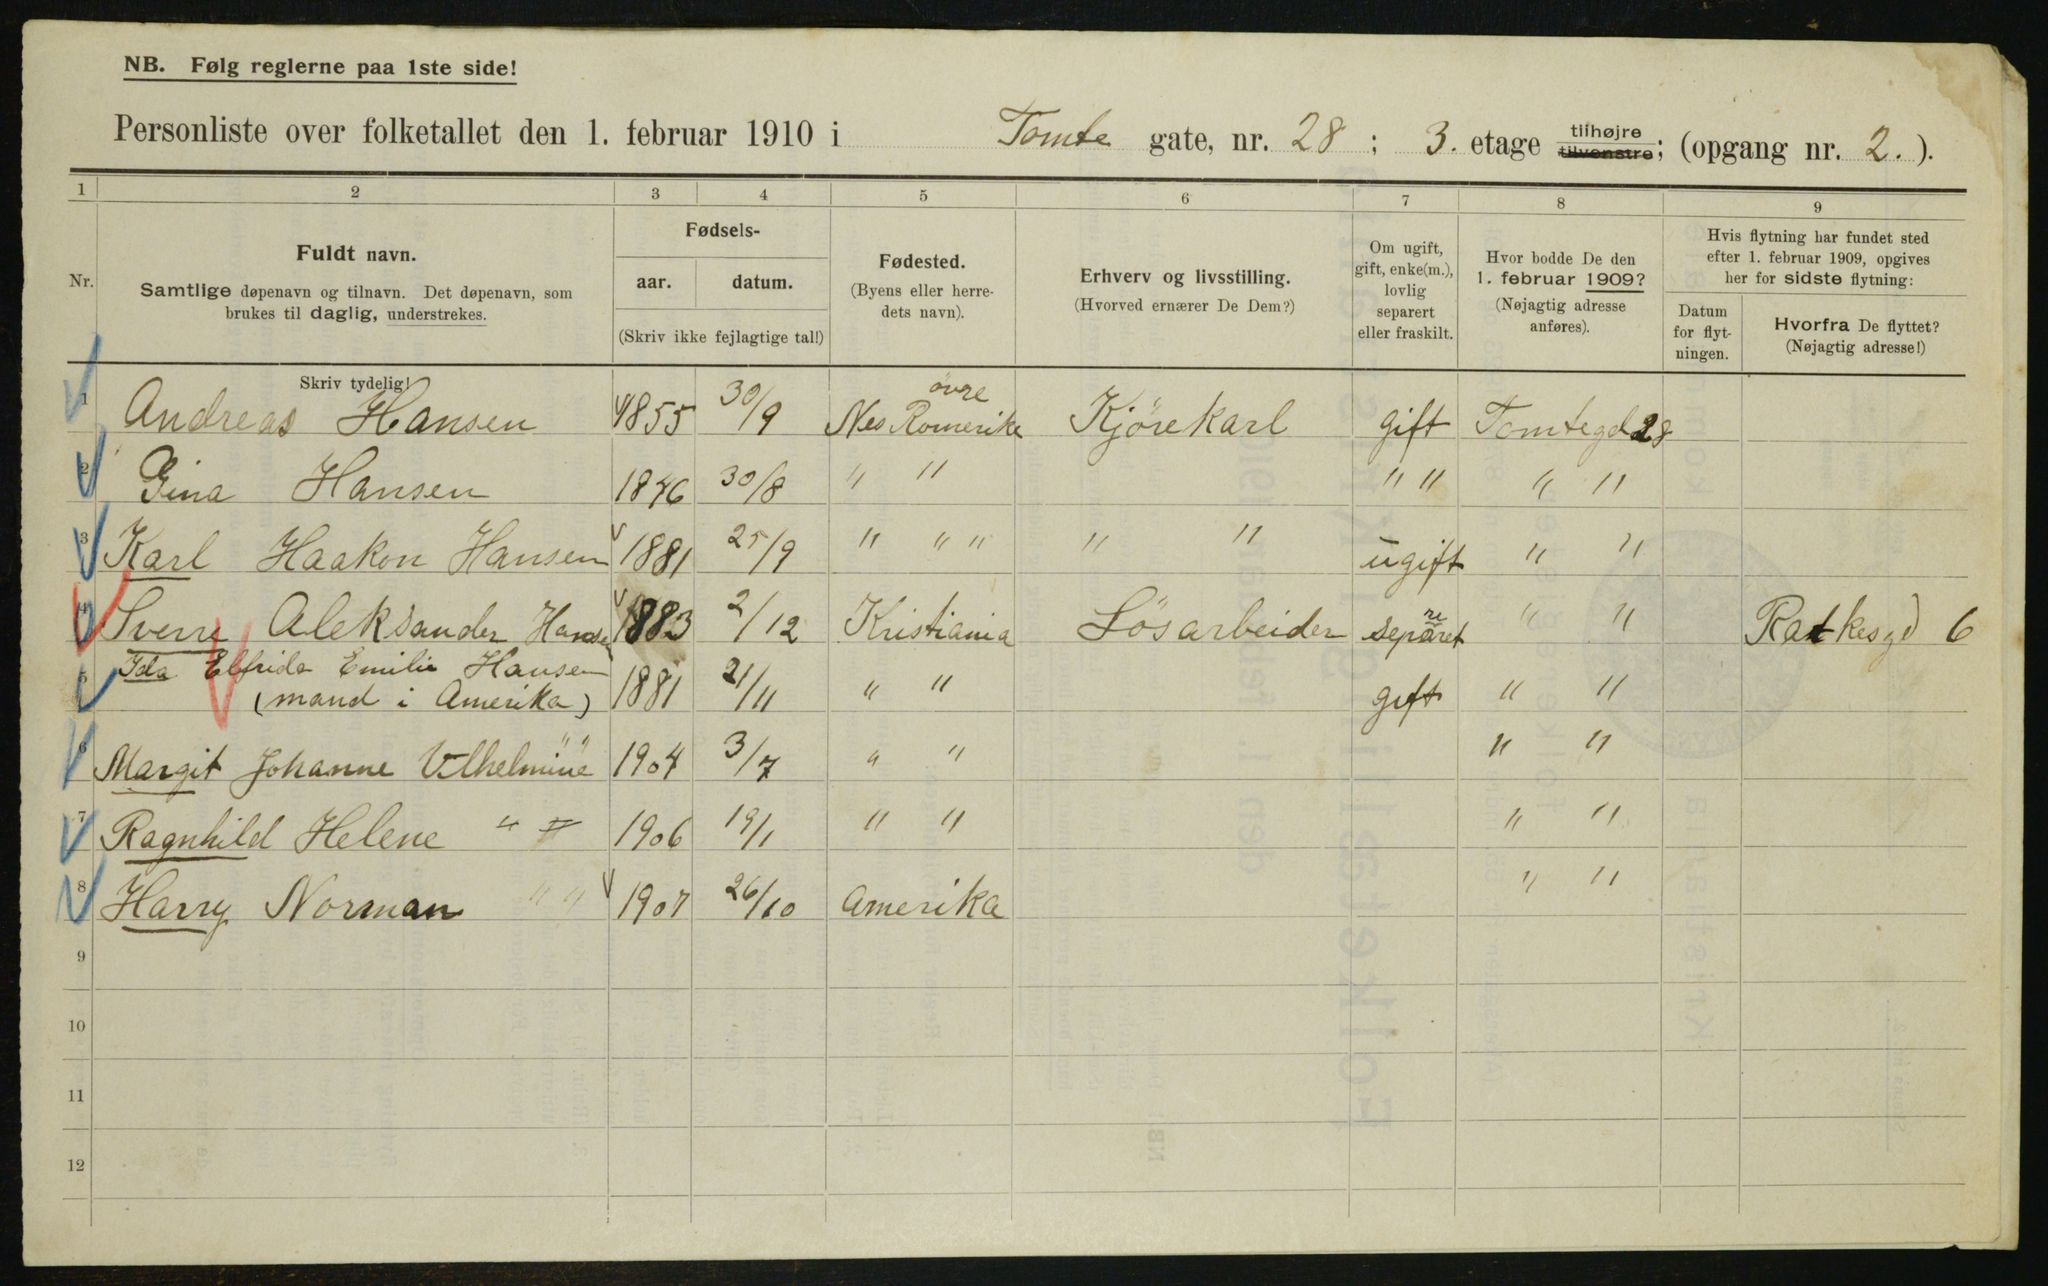 NB. Følg reglerne paa 1ste side!
Personliste over folketallet den 1. februar 1910 i Tomte gate, nr. 28 ; 3. etage tilhøjre tilvenstre; (opgang nr. 2. ).
1 2 3 4 5 6 7 8 9
Nr.
Fuldt navn.
Samtlige døpenavn og tilnavn. Det døpenavn, som
brukes til daglig, understrekes.
Fødsels-
aar. datum.
(Skriv ikke fejlagtige tal!)
Fødested.
(Byens eller herre-
dets navn).
Erhverv og livsstilling.
(Hvorved ernærer De Dem?)
Om ugift,
gift, enke(m.),
lovlig
separert
eller fraskilt.
Hvor bodde De den
1. februar 1909?
(Nøjagtig adresse
anføres).
Hvis flytning har fundet sted
efter 1. februar 1909, opgives
her for sidste flytning:
Datum
for flyt-
ningen.
Hvorfra De flyttet?
(Nøjagtig adresse!)
Skriv tydelig!
1 Andreas Hansen 1855 30/9 Nes øvre Romerike Kjörekarl gift Tomtegd 28
2 Gina Hansen 1846 30/8 " " " " " "
3 Karl Haakon Hansen 1881 25/9 " " " " " ugift " "
4 Sverre Aleksander Hansen 1883 2/12 Kristiania Lösarbeider separeret " " Ratkesgd 6
5 Ida Elfrida Emilie Hansen
(mand i Amerika) 1881 21/11 " " gift " "
6 Margit Johanne Vilhelmine " " 1904 3/7 " " " "
7 Ragnhild Helene " " 1906 19/1 " " " "
8 Harry Norman " " 1907 26/10 Amerika " "
9
10
11
12